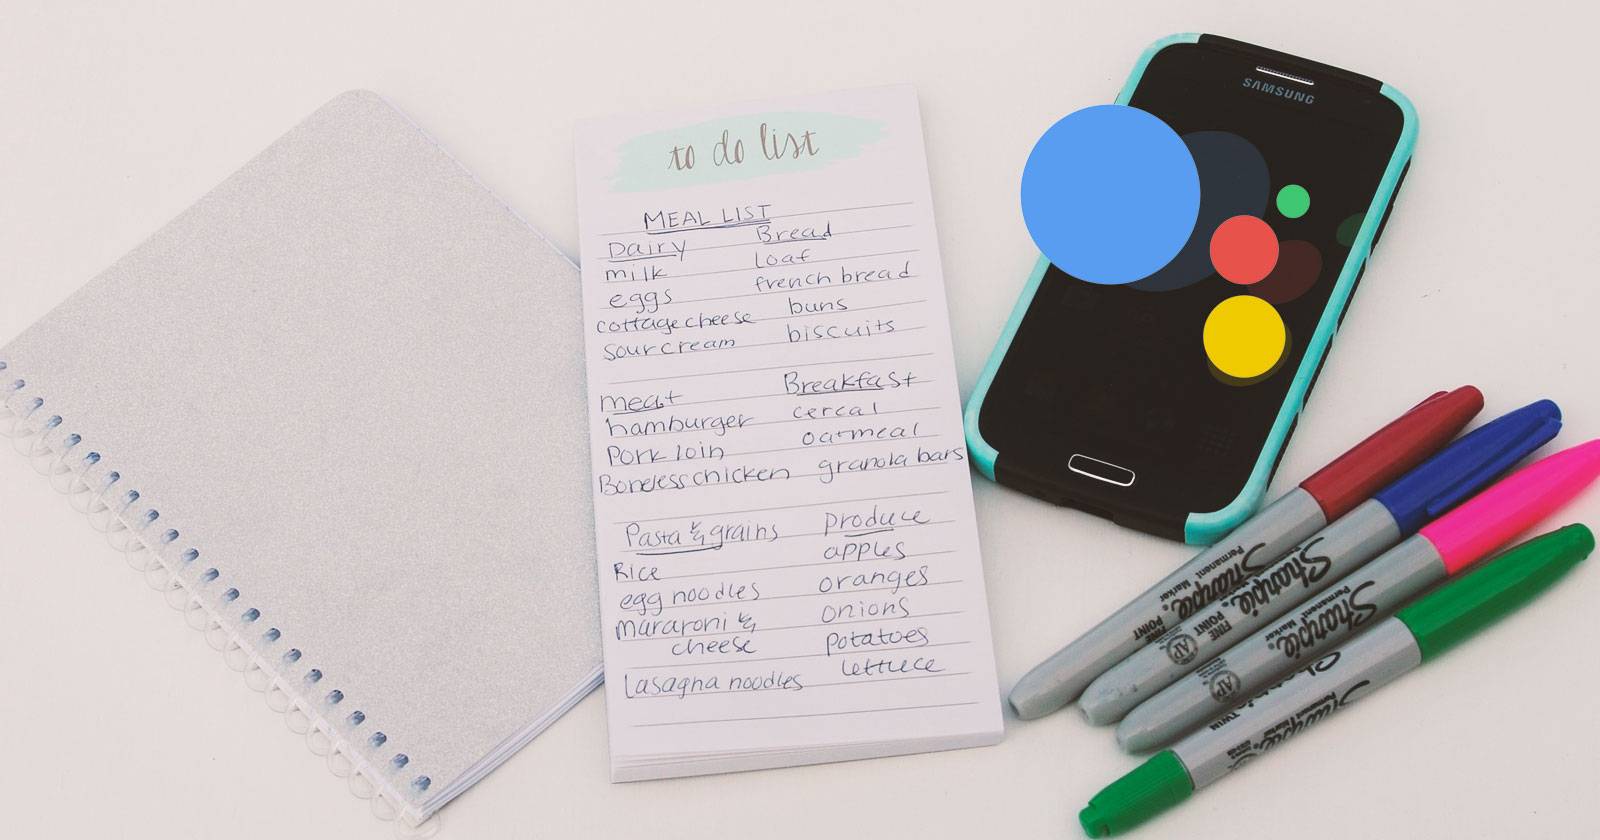 to do list
MEAL LIST
Dairy
milk
eggs
cottage cheese
sour cream
Bread
loaf
french bread
buns
biscuits
meat
hamburger
Pork loin
Boneless chicken
Breakfast
cereal
oatmeal
granola bars
Pasta & grains
Rice
egg noodles
mararoni &
cheese
lasagna noodles
produce
apples
oranges
onions
potatoes
lettuce
SAMSUNG
Sharpie
Permanent Marker
FINE POINT
Sharpie
FINE POINT
AP
Sharpie
Permanent Marker
AP
TWIN